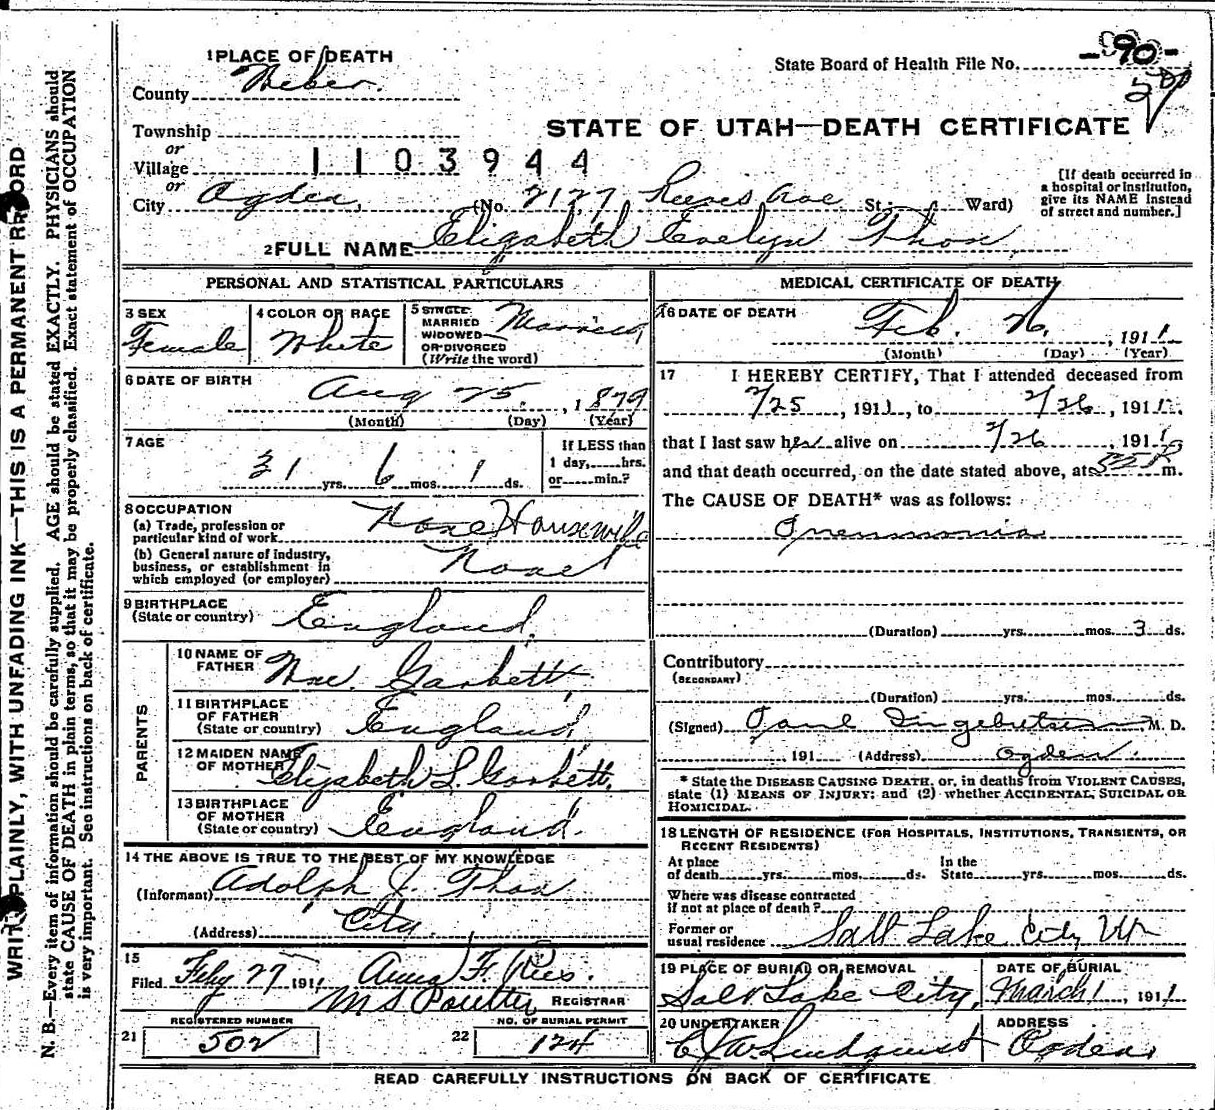 1 PLACE OF DEATH
County Weber.
State Board of Health File No. -90-
Township
or
Village
1103944
or
City Ogden, (No. 2127 Reeves Ave St. Ward)
STATE OF UTAH—DEATH CERTIFICATE
[If death occurred in
a hospital or institution,
give its NAME instead
of street and number.]
2 FULL NAME Elizabeth Evelyn Thon
PERSONAL AND STATISTICAL PARTICULARS
3 SEX
Female
4 COLOR OR RACE
White
5 SINGLE
MARRIED
WIDOWED
OR DIVORCED
(Write the word)
Married
6 DATE OF BIRTH
Aug 25, 1879
(Month) (Day) (Year)
7 AGE
31 yrs. 6 mos. 1 ds.
If LESS than
1 day, hrs.
or min.?
8 OCCUPATION
(a) Trade, profession or
particular kind of work None Housewife
(b) General nature of industry,
business, or establishment in
which employed (or employer) None
9 BIRTHPLACE
(State or country) England.
PARENTS
10 NAME OF
FATHER Wm. Garbett
11 BIRTHPLACE
OF FATHER
(State or country) England
12 MAIDEN NAME
OF MOTHER Elizabeth L. Garbett.
13 BIRTHPLACE
OF MOTHER
(State or country) England.
14 THE ABOVE IS TRUE TO THE BEST OF MY KNOWLEDGE
(Informant) Adolph J. Thon
(Address) City
15
Filed Feby 27 1911 Anna F. Ries.
M S Poulter REGISTRAR
21 REGISTERED NUMBER
502
22 NO. OF BURIAL PERMIT
124
MEDICAL CERTIFICATE OF DEATH
16 DATE OF DEATH
Feb. 26, 1911
(Month) (Day) (Year)
17 I HEREBY CERTIFY, That I attended deceased from
2/25, 1911, to 2/26, 1911.
that I last saw her alive on 2/26, 1911
and that death occurred, on the date stated above, at 555 P m.
The CAUSE OF DEATH* was as follows:
Pneumonia
(Duration) yrs. mos. 3 ds.
Contributory
(SECONDARY)
(Duration) yrs. mos. ds.
(Signed) Paul Ingebretsen M. D.
191 (Address) Ogden.
* State the DISEASE CAUSING DEATH, or, in deaths from VIOLENT CAUSES,
state (1) MEANS OF INJURY; and (2) whether ACCIDENTAL, SUICIDAL OR
HOMICIDAL.
18 LENGTH OF RESIDENCE (FOR HOSPITALS, INSTITUTIONS, TRANSIENTS, OR
RECENT RESIDENTS)
At place
of death yrs. mos. ds.
In the
State yrs. mos. ds.
Where was disease contracted
if not at place of death?
Former or
usual residence Salt Lake City Ut
19 PLACE OF BURIAL OR REMOVAL
Salt Lake City,
DATE OF BURIAL
March 1, 1911
20 UNDERTAKER
Lindquist
ADDRESS
Ogden,
READ CAREFULLY INSTRUCTIONS ON BACK OF CERTIFICATE
WRITE PLAINLY, WITH UNFADING INK—THIS IS A PERMANENT RECORD
N. B.—Every item of information should be carefully supplied. AGE should be stated EXACTLY. PHYSICIANS should
state CAUSE OF DEATH in plain terms, so that it may be properly classified. Exact statement of OCCUPATION
is very important. See instructions on back of certificate.